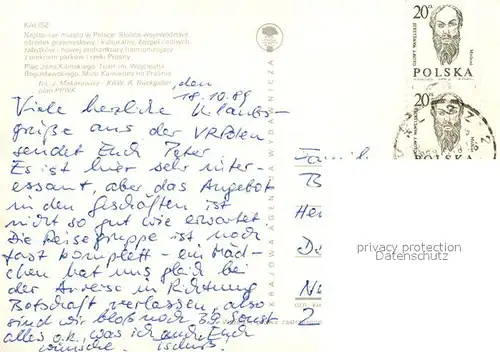 KALISZ
Najstarsze miasto w Polsce. Stolica województwa,
ośrodek przemysłowy i kulturalny. Zespół cennych
zabytków i nowej architektury harmonizujący
z pięknem parków i rzeki Prosny
Plac Jana Kilińskiego. Teatr im. Wojciecha
Bogusławskiego. Most Kamienny na Prośnie
fot. J. Makarewicz - KAW, A.
plan PPWK
, den
18.10.89
Viele herzliche Urlaubs-
grüße aus der VR Polen
sendet Euch Peter
Es ist hier sehr inter-
essant, aber das Angebot
in den Geschäften ist
nicht so gut wie erwartet
Die Reisegruppe ist noch
fast komplett - ein Mäd-
chen hat uns gleich bei
der Anreise in Richtung
Botschaft verlassen, also
sind wir bloß noch 32. Sonst
alles o.k., was ich auch Euch
wünsche. Tschüß
KRAJOWA AGENCJA WYDAWNICZA
Famili
B
He
D
N
2
20zł
POLSKA
20zł
POLSKA
privacy protection
Datenschutz